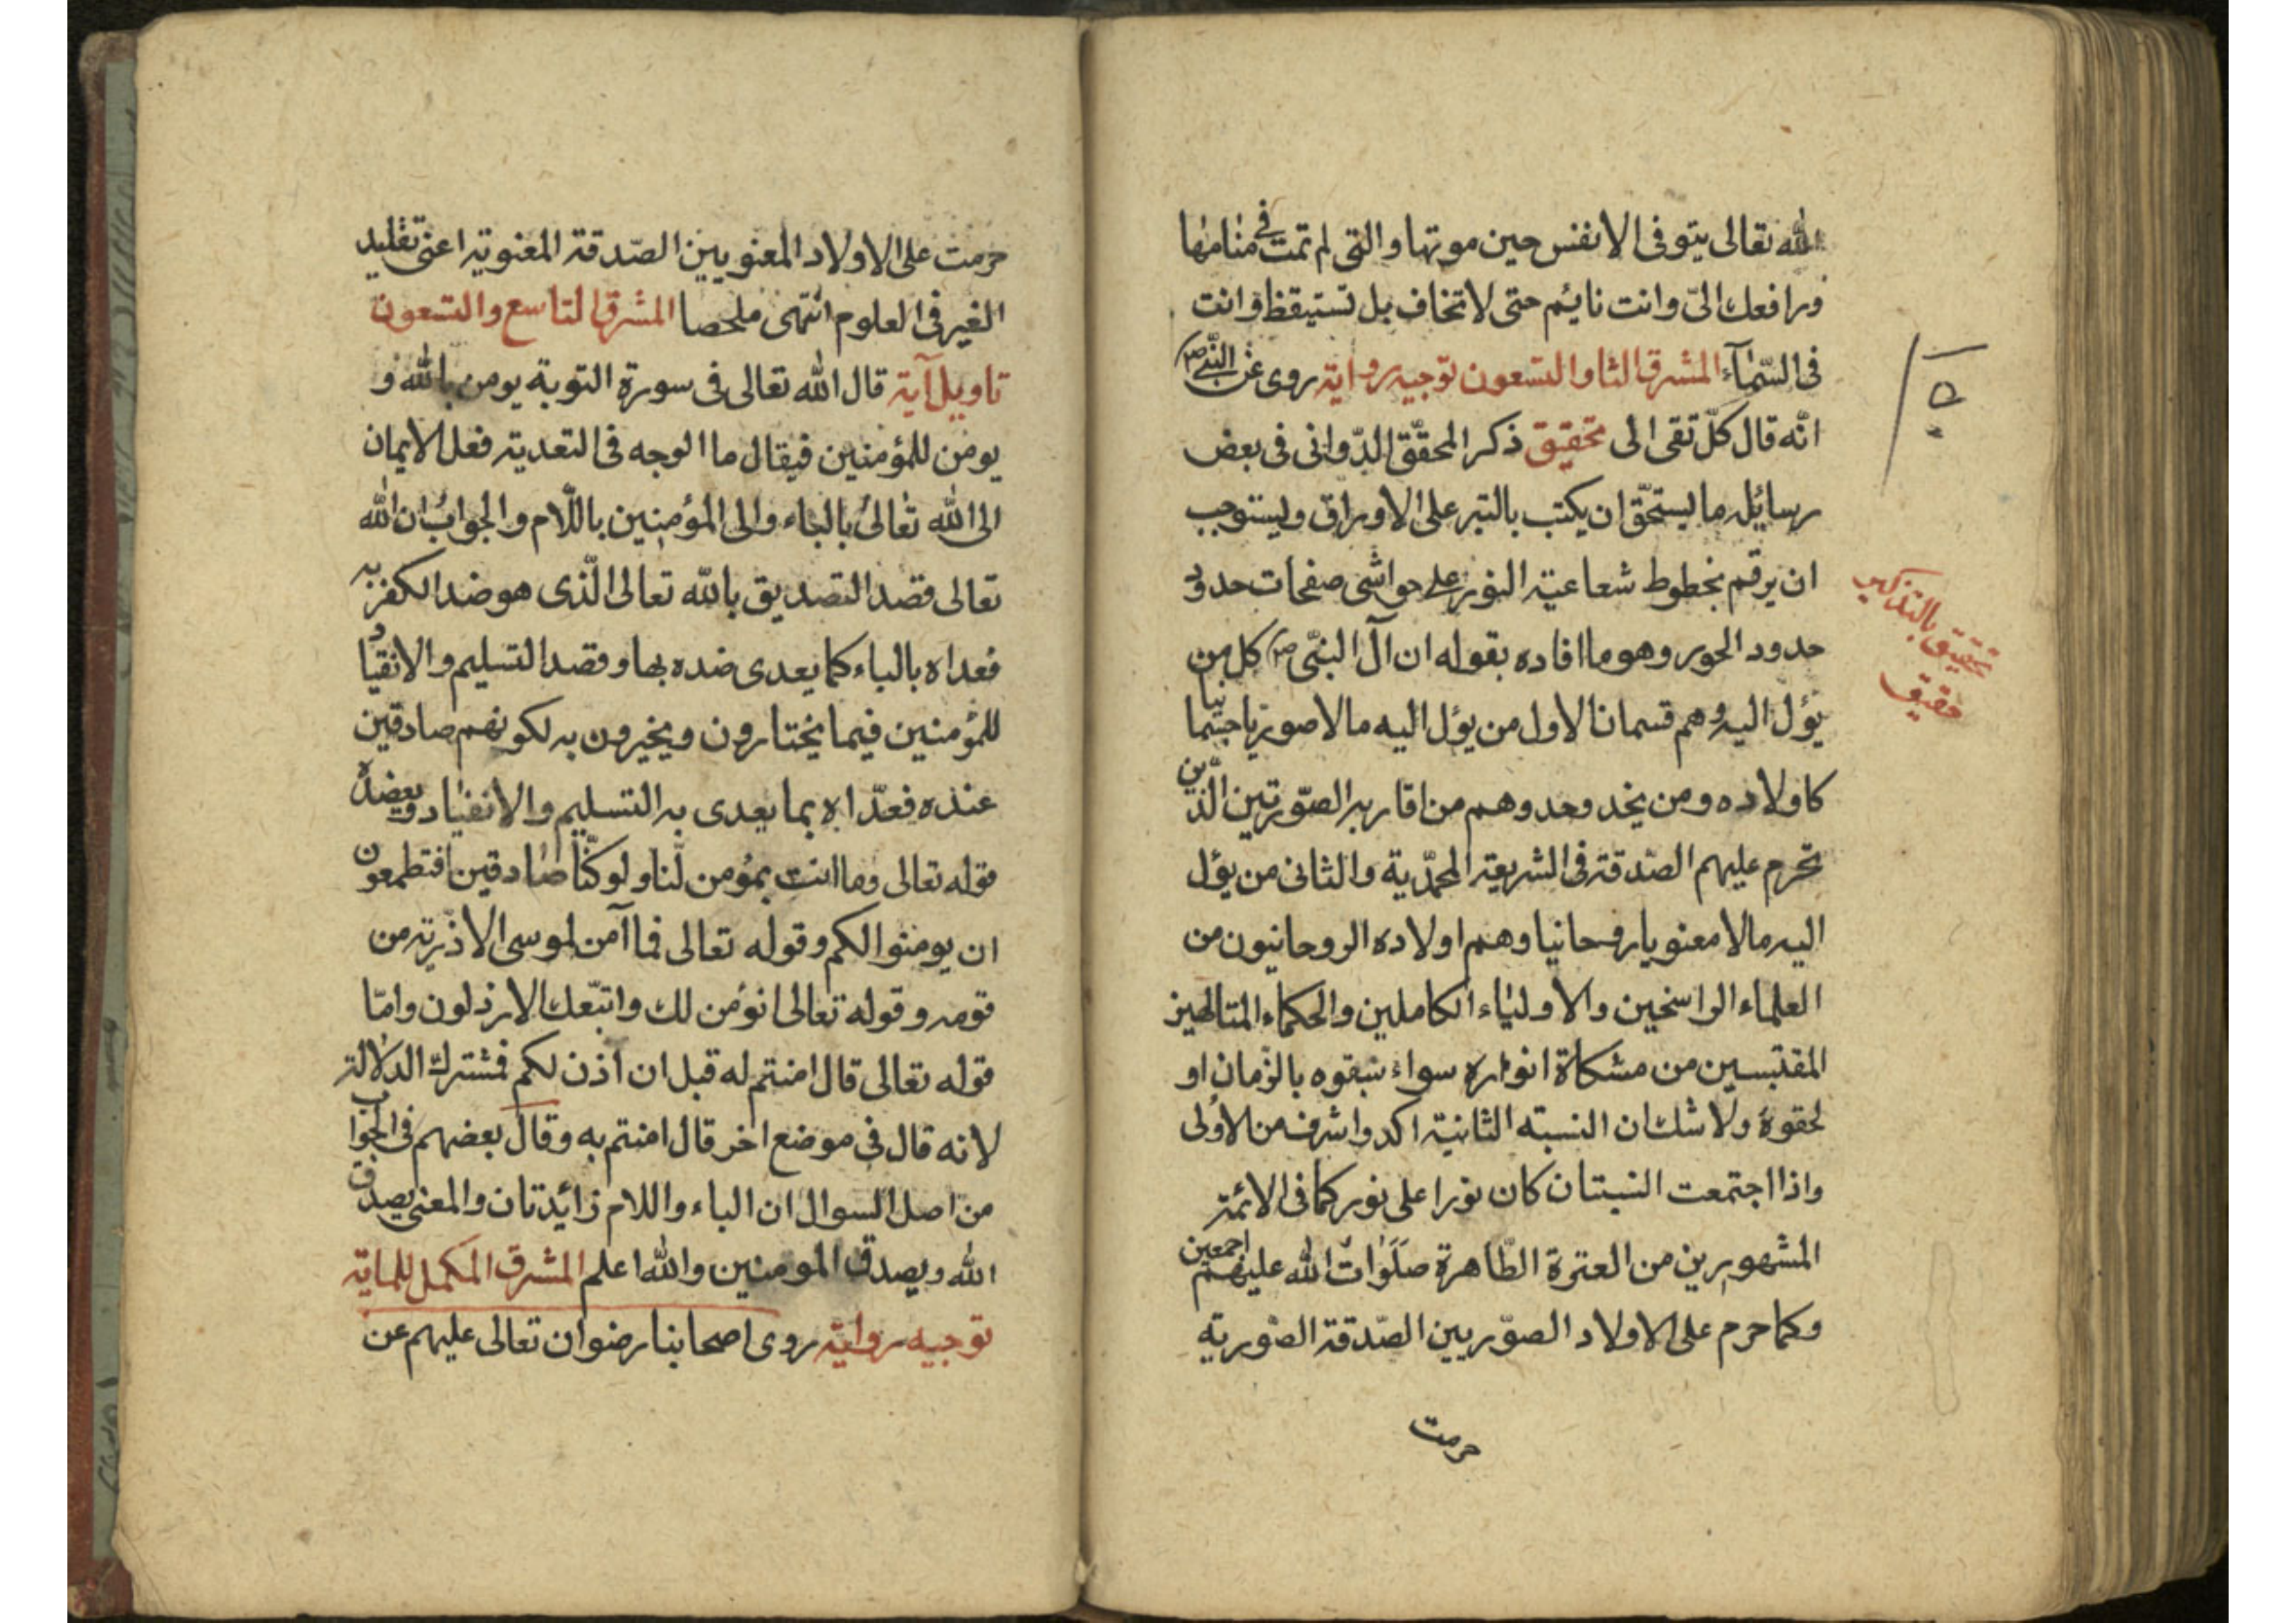 الله تعالى يتوفى الانفس حين موتها والتى لم تمت فى منامها
ورافعك الىّ وانت نائم حتى لا تخاف بل تستيقظ وانت
فى السّمآء المشرق الثا والتسعون توجيه رواية روى عن النّبى ص
انّه قال كلّ تقى الى تحقيق ذكر المحقّق الدّوانى فى بعض
رسائله ما يستحقّ ان يكتب بالتبر على الاوراق ويستوجب
ان يرقم بخطوط شعاعية النور على حواشى صفحات خدود
حدود الحور وهو ما افاده بقوله ان آل النبّى ص كل من
يؤل اليه وهم قسمان الاول من يؤل اليه مالا صوريا جسمانيا
كاولاده ومن يحذ وحذوهم من اقاربه الصّورتين الّذين
تحرم عليهم الصّدقة فى الشريعة المحمّدية والثانى من يؤل
اليه مالا معنويا روحانيا وهم اولاده الروحانيون من
العلماء الراسخين والاولياء الكاملين والحكماء المتالهين
المقتبسين من مشكاة انواره سواء سبقوه بالزّمان او
لحقوه ولا شك ان النسبة الثانية اكد واشرف من الاولى
واذا اجتمعت النسبتان كان نورا على نور كما فى الائمّة
المشهورين من العترة الطّاهرة صلوات الله عليهم اجمعين
وكما حرم على الاولاد الصوّريين الصّدقة الصّورية
حرمت
تحقيق بالتذكير
حقيق
حرمت على الاولاد المعنويين الصّدقة المعنوية اعنى تقليد
الغير فى العلوم انتهى ملخصا المشرق التاسع والتسعون
تاويل آية قال الله تعالى فى سورة التوبة يومن بالله و
يومن للمؤمنين فيقال ما الوجه فى التعدية فعل الايمان
الى الله تعالى بالباء والى المؤمنين باللّام والجواب ان الله
تعالى قصد التصديق بالله تعالى الّذى هو ضد الكفر به
فعداه بالباء كما يعدى ضده بها وقصد التسليم والانقياد
للمؤمنين فيما يختارون ويخبرون به لكونهم صادقين
عنده فعدّاه بما يعدى به التسليم والانقياد ويعضده
قوله تعالى وما انت بمؤمن لّنا ولو كنّا صادقين افتطمعون
ان يومنوا لكم وقوله تعالى فما آمن لموسى الا ذرّية من
قومه وقوله تعالى انؤمن لك واتبّعك الارذلون وامّا
قوله تعالى قال امنتم له قبل ان اذن لكم فمشترك الدلالة
لانه قال فى موضع اخر قال امنتم به وقال بعضهم فى الجواب
من اصل السوال ان الباء واللام زائدتان والمعنى يصدق
الله ويصدق المومنين والله اعلم المشرق المكمل للماية
توجيه رواية روى اصحابنا رضوان تعالى عليهم عن